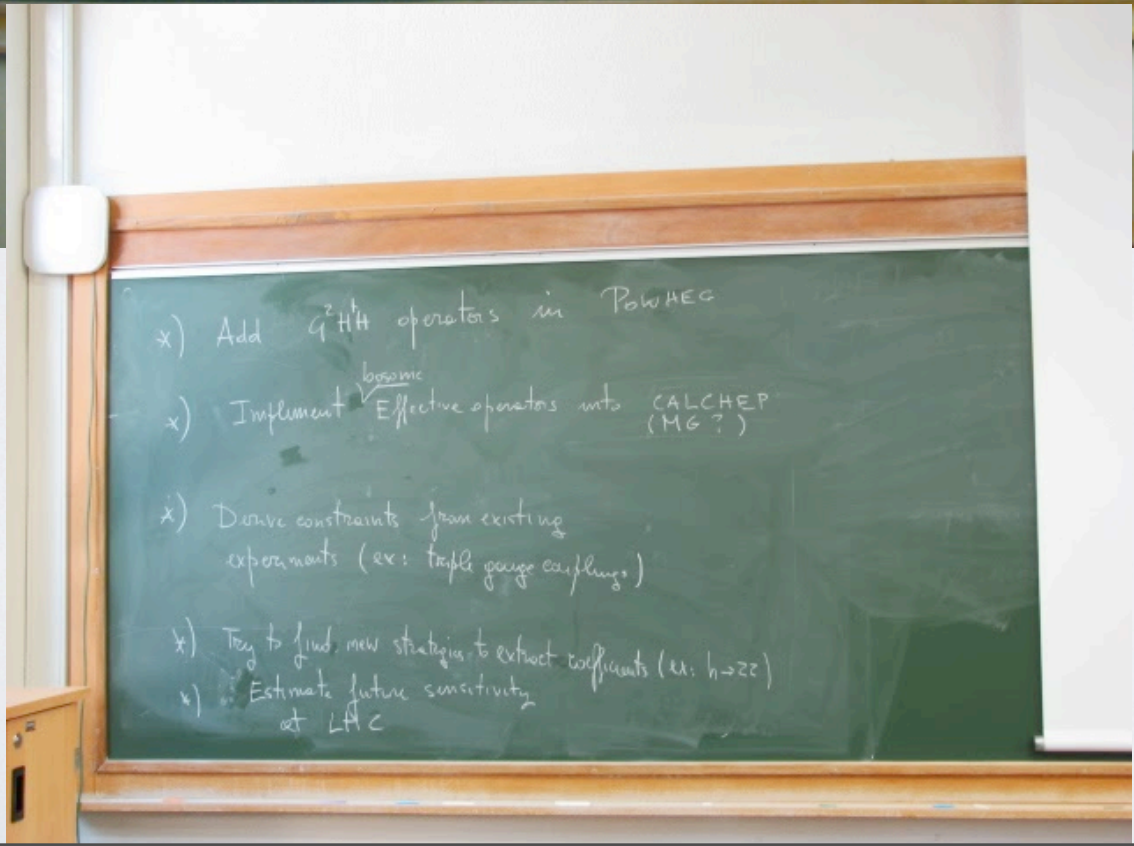 *) Add G²H†H operators in POWHEG
bosonic
*) Implement Effective operators into CALCHEP
(MG?)
*) Derive constraints from existing
experiments (ex: triple gauge couplings)
*) Try to find new strategies to extract coefficients (ex: h→ZZ)
*) Estimate future sensitivity
at LHC